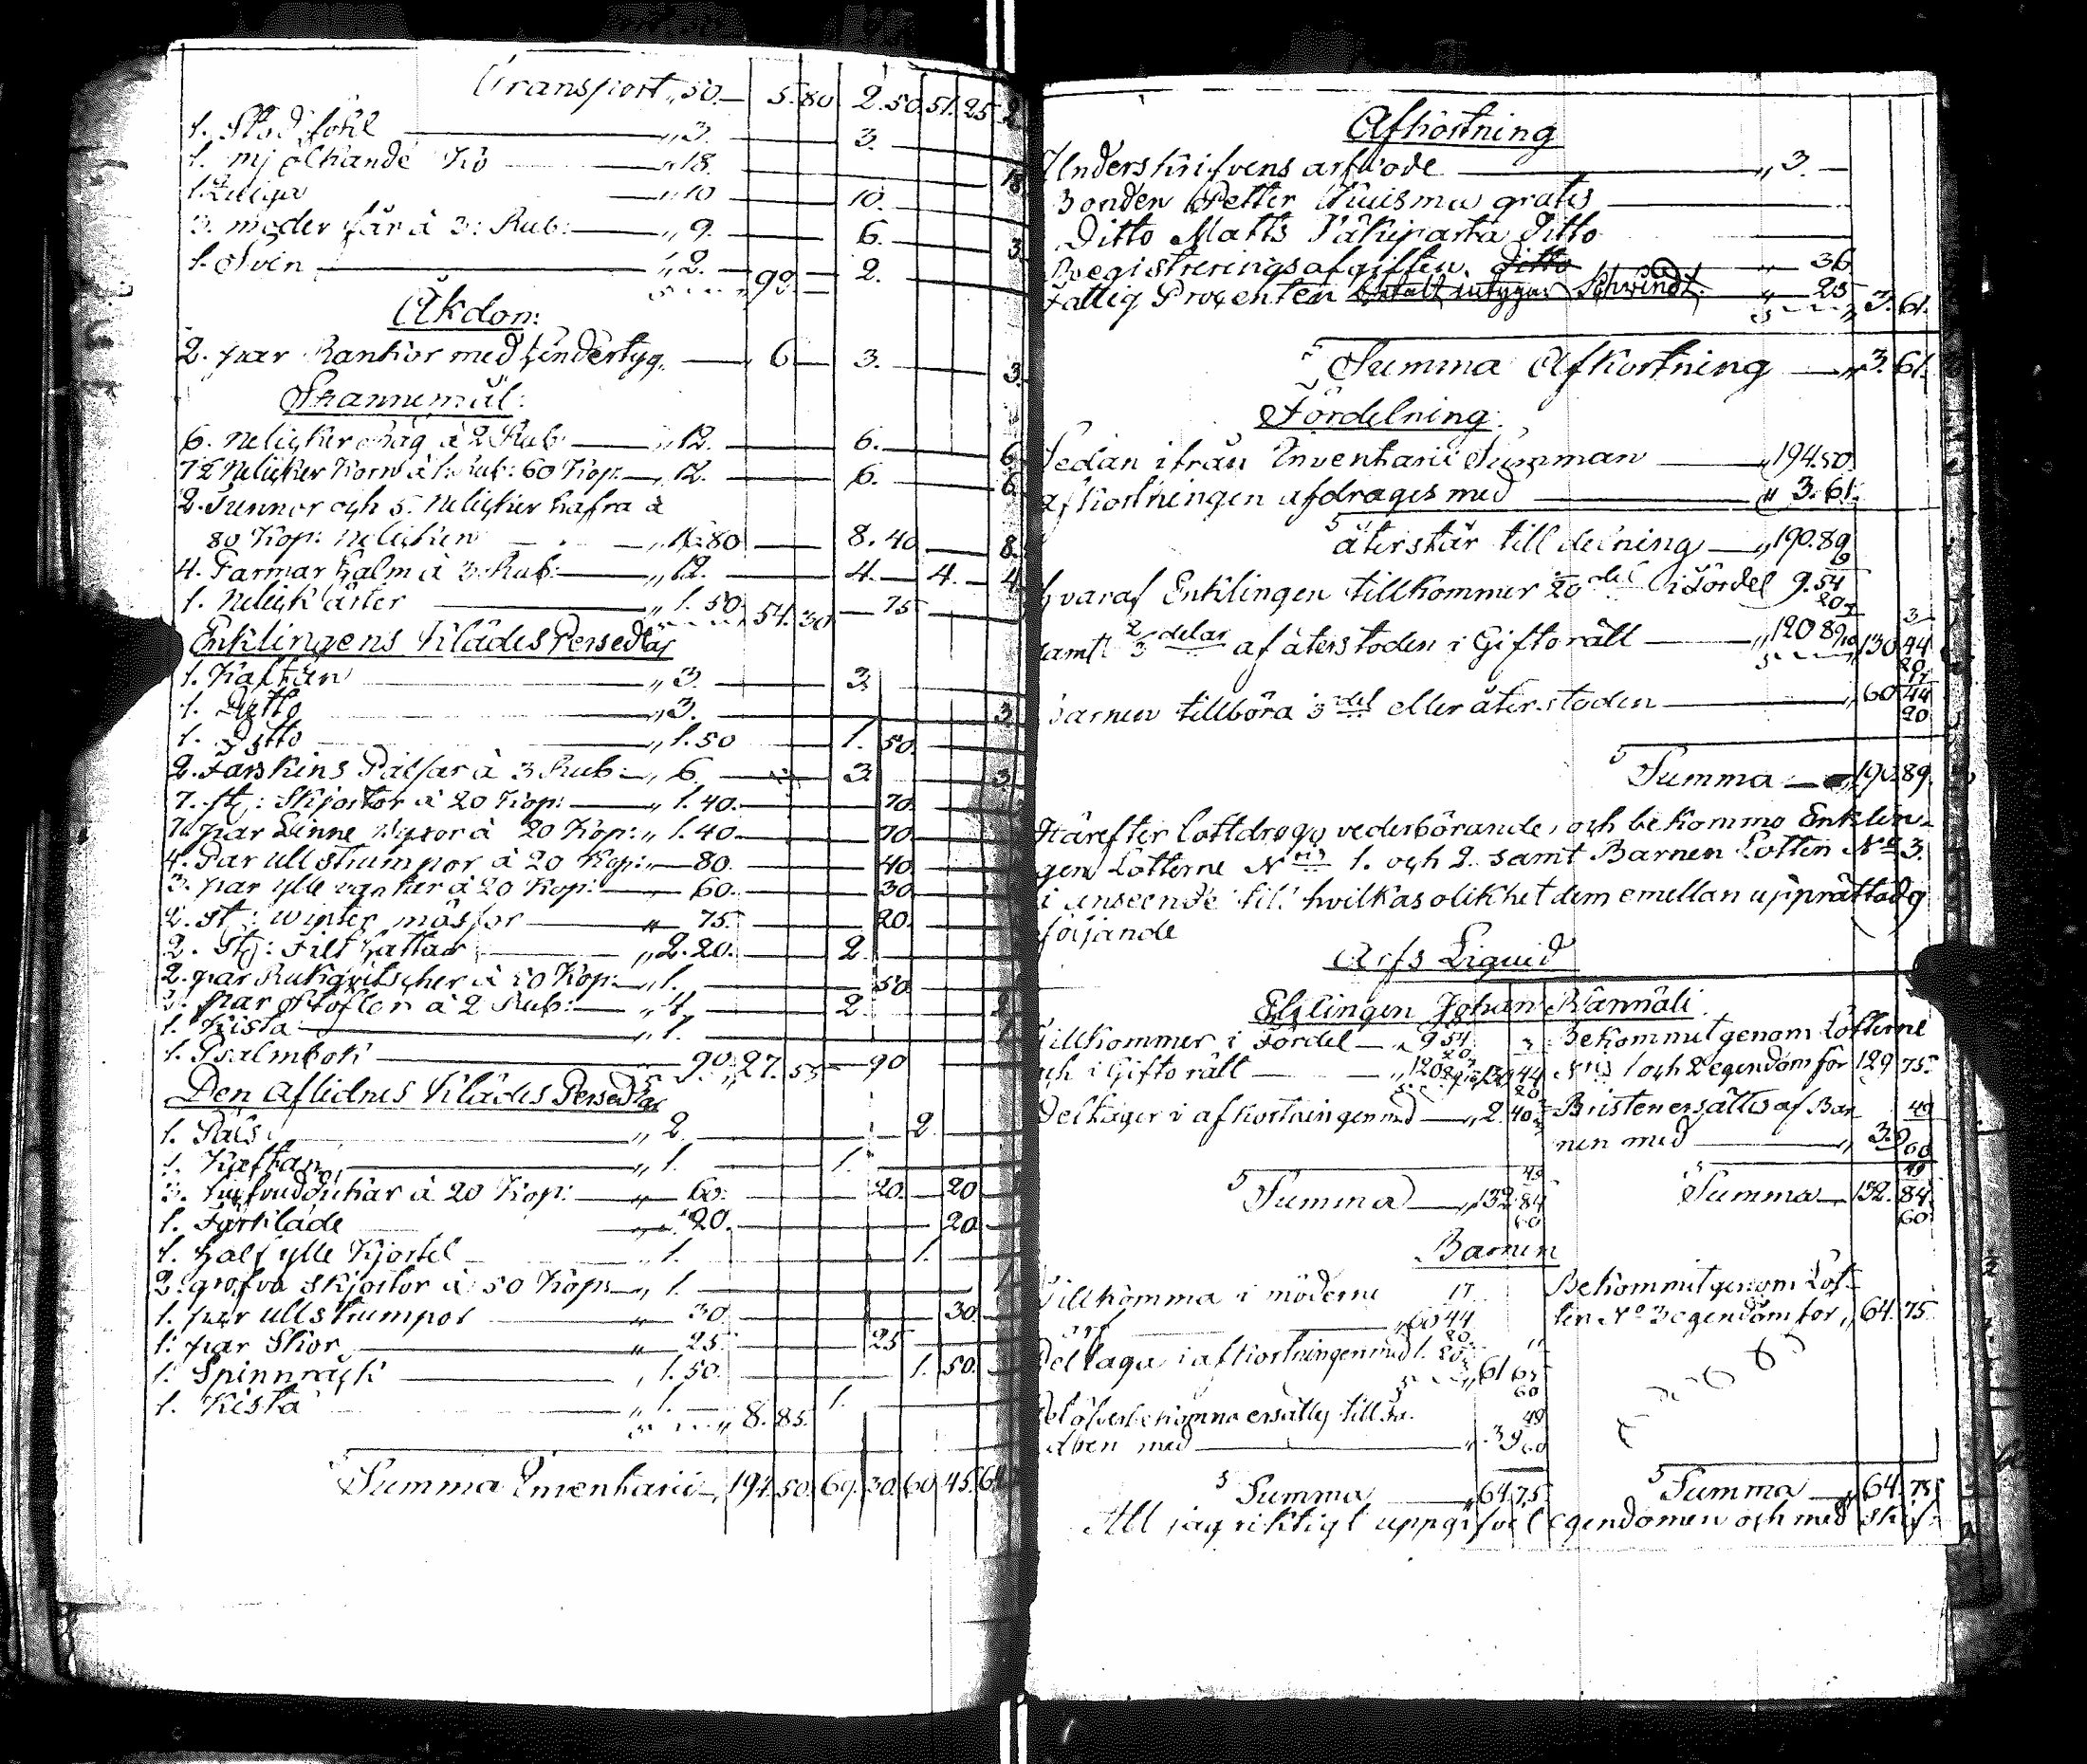 Transport „50.— 5.80 2.50 51.25 2
1. Stod fohl „3. 3.
1. mjölkande Ko „18. 18
1. quiga „10 10.
3. moder får à 3: Rub: „9. 6. 3
1. Svin „2. 92. 2.
Åkdon:
2. par Kärror med undertyg. 6 3. 3.
Spannemål:
6. Kappar Råg à 2 Rub: „12. 6. 6
7½ Korn à 1. Rub: 60 Kop: „12. 6. 6
2. Tunnor och 5. hafra à
80 Kop: „16.80 8.40 8
4. Parmar halm à 3. Rub: „12. 4. 4. 4
1. ärter „1.50. 54.30 75
Enklingens Klädes Persedlar
1. Kaftan „3. 3.
1. Ditto „3. 3
1. Ditto „1.50 1.50.
2. Fårskins Pälsar à 3 Rub: „6. 3. 3
7. st: Skjortor à 20 Kop: „1.40. 70.
7. par Linne à 20 Kop: „1.40. 70.
4. Par ullstrumpor à 20 Kop: „80. 40.
3. par ylle vantar à 20 Kop: „60. 30
2. st: winter mössor „75. 20.
2. st: Filt hattar „2.20. 2.
2. par à 50 Kop: „1. 50
2. par Stöflor à 2 Rub: „4. 2. 2
1. Kista „1.
1. Psalmbok 90. „27.55 90
Den Aflidnes Klädes Persedlar
1. Päls „2. 2.
1. Kaftan „1. 1.
3. hufvuddukar à 20 Kop: „60. 20. 20
1. Förkläde „20. 20
1. half ylle Kjortel „1. 1.
2. grofva skjortor à 50 Kop: „1. 1
1. par ullstrumpor „30. 30
1. par Skor „25. 25
1. Spinnråck „1.50. 1.50.
1. Kista „1. 8.85. 1.
Summa Inventarii „194.50. 69.30 60.45. 64
Afkortning
Underskrifvens arfvode „3.—
Bonden Petter Kuisma gratis
Ditto Matts Ditto
Registreringsafgiften ditto „36.
Fattig Procenten betalt intygar Schvindt. „25 3.61.
Summa Afkortning „3.61.
Fördelning:
Sedan ifrån Inventarii Summan „194.50
afkortningen afdrages med „3.61.
återstår till delning „190.89
hvaraf Enklingen tillkommer 20 del i Fördel 9.54 9/20
samt 2/3 delar af återstoden i Giftorätt „120 89 130 44 3/20
Barnen tillhöra 3 del eller återstoden „60 44 17/20
Summa 190.89.
Härefter lottdrogo vederbörande, och bekommo Enklin-
gen Lotterne N ris 1. och 2. samt Barnen Lotten N o 3.
i anseende till hvilkas olikhet dem emellan upprättades
följande
Arfs Liquid
Enklingen Johan Rännäli
Tillkommer i Fördel „9 54 9/20
och i Giftorätt „120 89 130 44 3/20
Deltager i afkortningen med „2.40
Summa „132.84 49/60
Bekommit genom Lotterne
N ris 1 och 2 egendom för 129 75.
Bristen ersättes af Bar
nen med „3.9 49/60
Summa „132.84 49/60
Barnen
Tillkomma i möderne
arf „60 44 17/20
Deltaga i afkortningen med 1.20 „61 65 11/60
Det öfverbekomna ersättes till
med „3 9 49/60
Summa „64 75
Bekommit genom Lot-
ten N o 3 egendom för „64.75.
Summa „64.75.
Att jag riktigt uppgifvit egendomen och med skif-